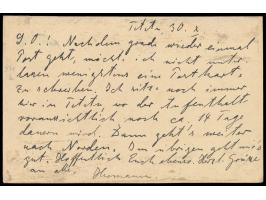 Tititz 30. X
S. O.! Nachdem grade wieder einmal
Post geht, möcht' ich nicht unter-
lassen wenigstens eine Postkarte
zu schreiben. Ich sitze noch immer
hier in Tititz, wo der Aufenthalt
voraussichtlich noch ca. 14 Tage
dauern wird. Dann geht's weiter
nach Norden. Im übrigen geht mir's
gut. Hoffentlich Euch ebenso. Herzl. Grüsse
an alle. Hermann